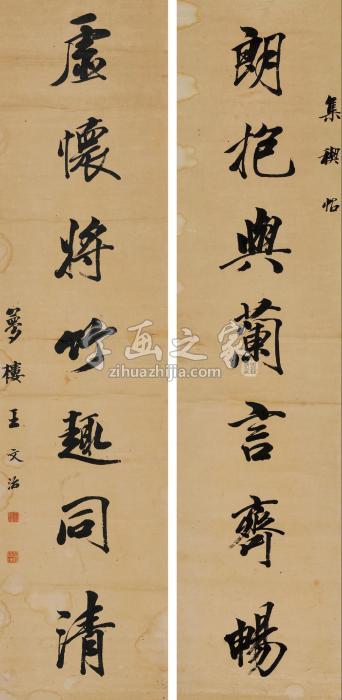 集禊帖
朗抱與蘭言齊暢
虛懷將竹趣同清
夢樓王文治
字画之家
zihuazhijia.com